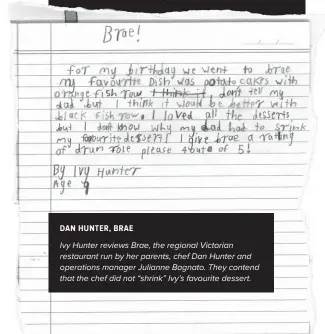 Brae!
for my birthday we went to brae
my favourite Dish was potato cakes with
orange fish row. I think it, dont tell my
dad but I think it would be better with
black fish row. I loved all the desserts,
but I dont know why my dad had to srink
my favourite dessert! I give brae a rating
of drum role please 4 out of 5!
By Ivy Hunter
Age 9
DAN HUNTER, BRAE
Ivy Hunter reviews Brae, the regional Victorian
restaurant run by her parents, chef Dan Hunter and
operations manager Julianne Bagnato. They contend
that the chef did not “shrink” Ivy’s favourite dessert.